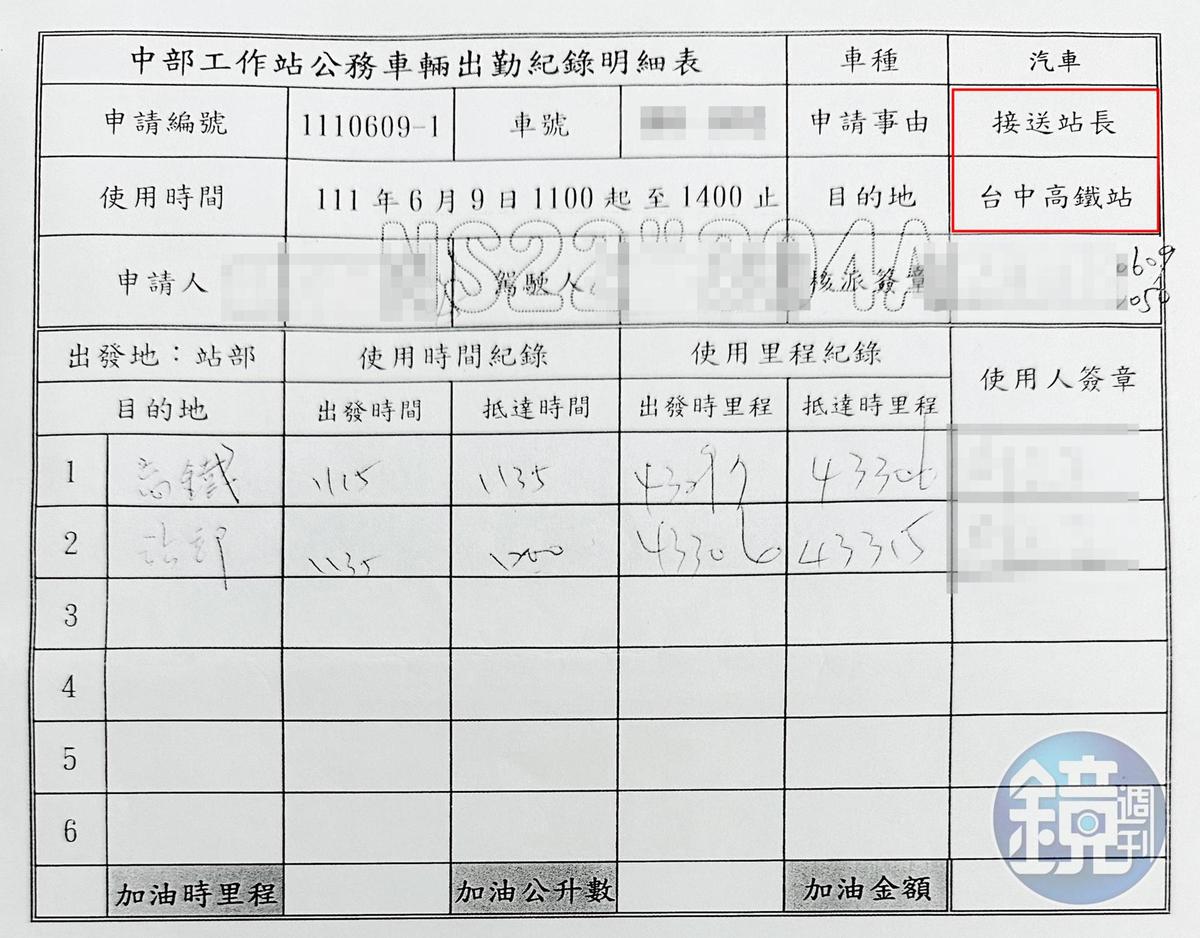 中部工作站公務車輛出勤紀錄明細表 車種 汽車
申請編號 1110609-1 車號 申請事由 接送站長
使用時間 111年6月9日1100起至1400止 目的地 台中高鐵站
申請人 駕駛人 核派簽章 0609
1050
出發地：站部 使用時間紀錄 使用里程紀錄 使用人簽章
目的地 出發時間 抵達時間 出發時里程 抵達時里程
1 高鐵 1115 1135 43297 43306
2 站部 1135 1200 43306 43315
3
4
5
6
加油時里程 加油公升數 加油金額
鏡週刊